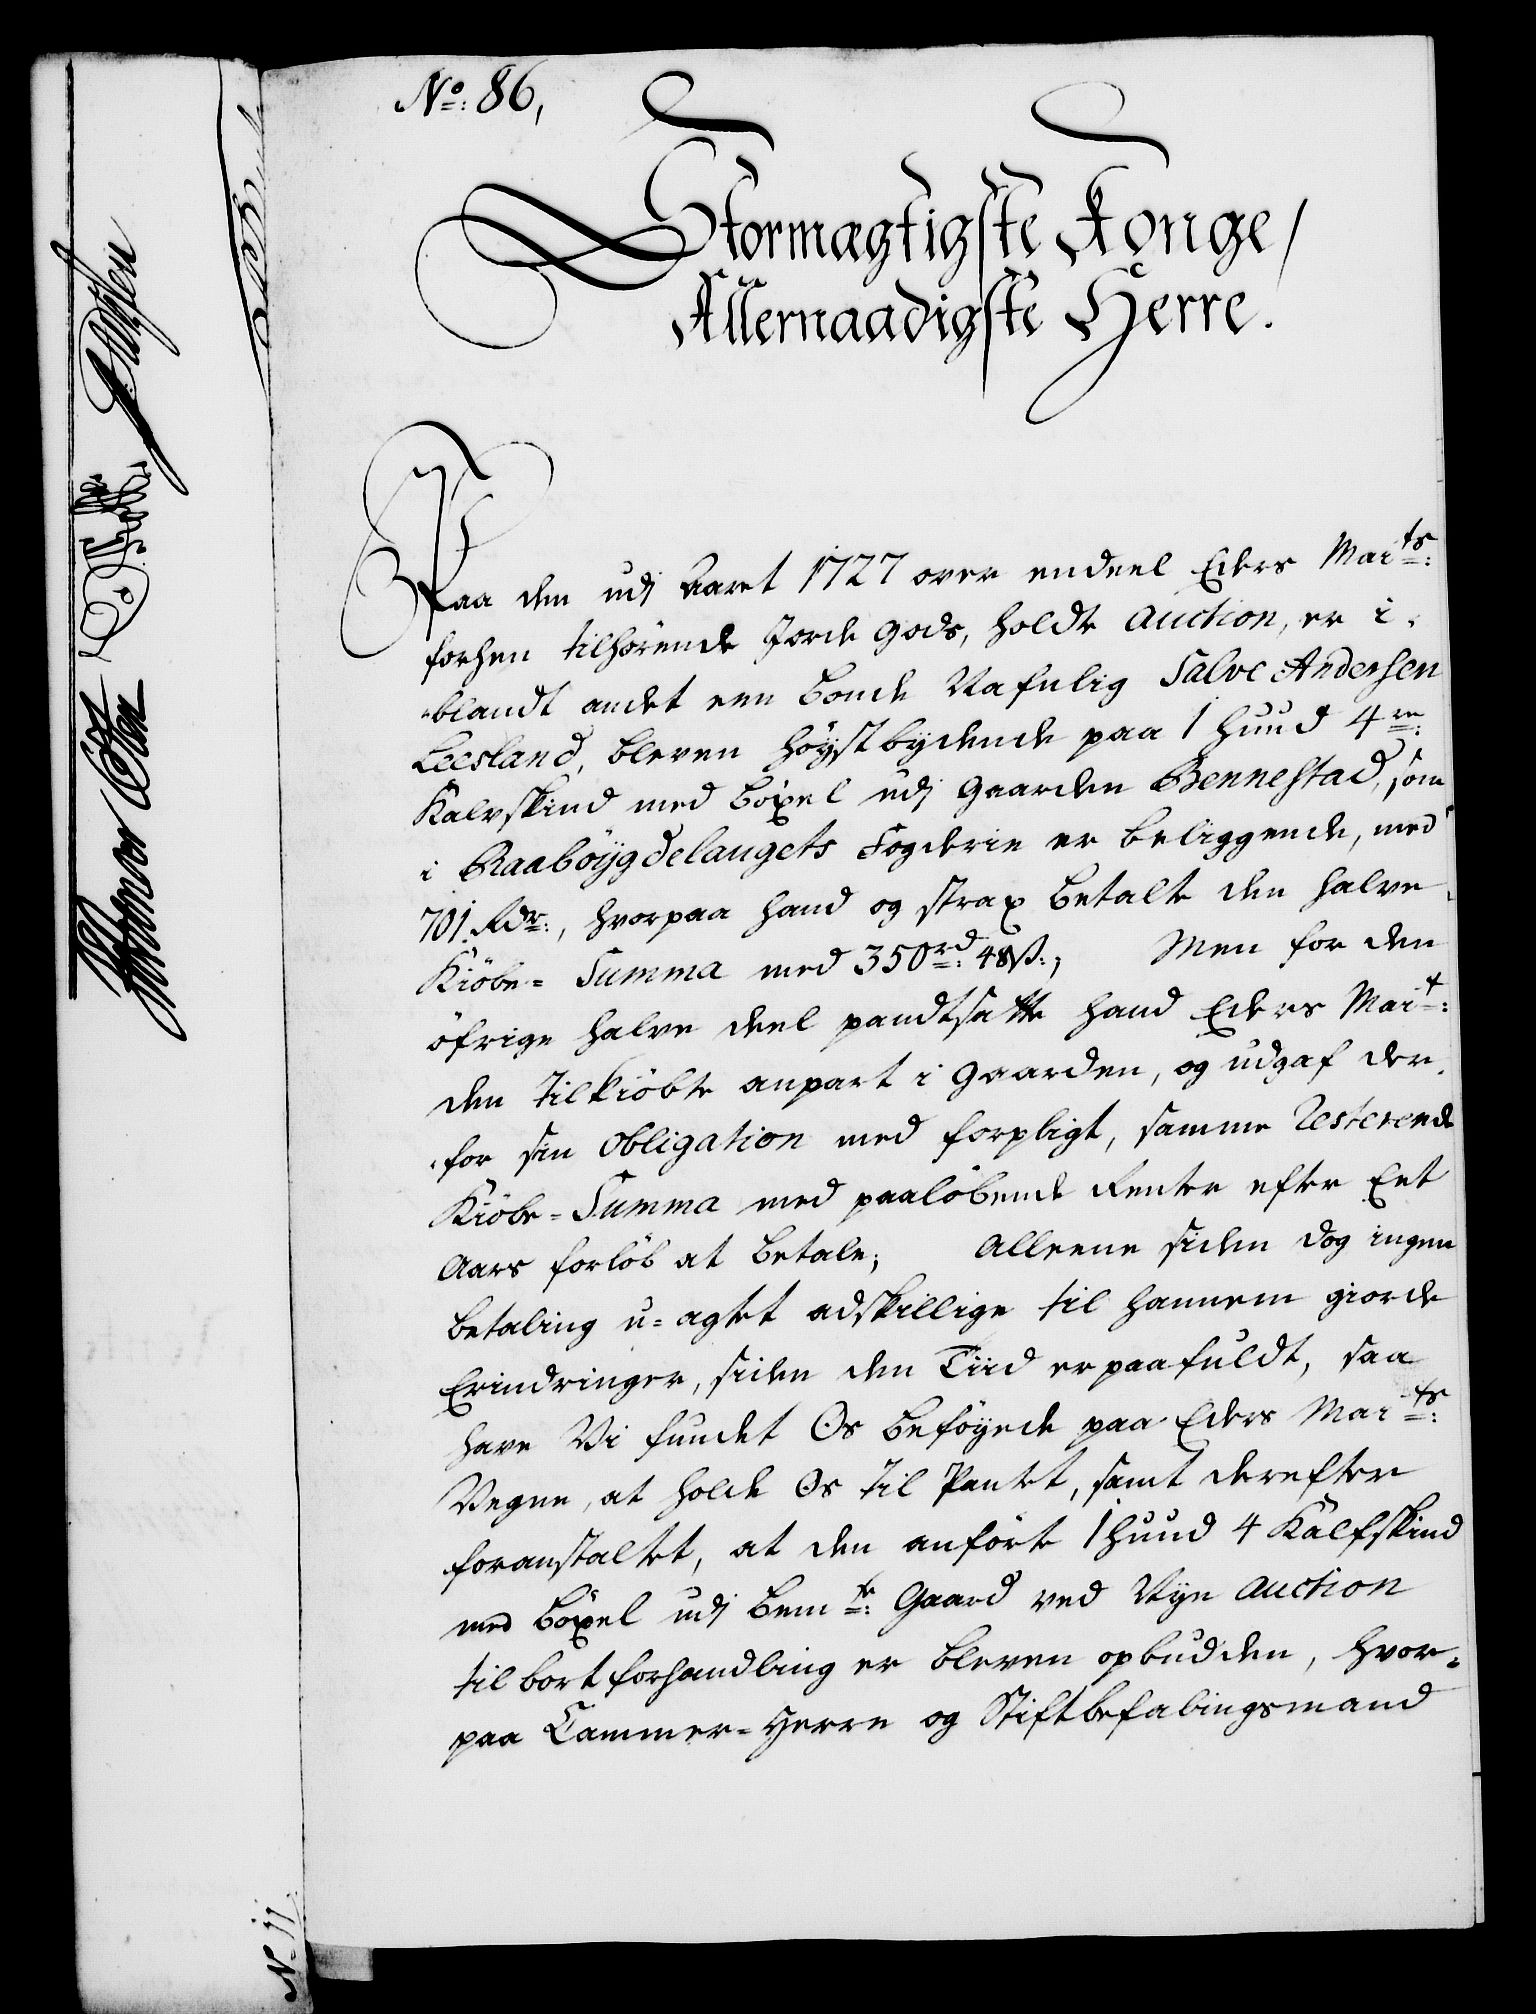 No: 86,
Stormægtigste Konge/
Allernaadigste Herre.
Paa den udj Aaret 1727 over endeel Eders Maits:
forhen tilhørende Jorde Gods, holdte Auction, er i-
blandt andet een Bonde Nafnlig Salve Andersen
Leesland, bleven høystbydende paa 1 huud 4re:
Kalvskind med bøxel udj Gaarden Bennestad, som
i Raabøygdelaugets Fogderie er beliggende, med
701 Rdr:, hvorpaa hand og strax betalte den halve
Kiøbe-Summa med 350rd: 48ß:, Men for den
øfrige halve deel pandtsatte hand Eders Mait:
den tilkiøbte anpart i Gaarden, og udgaf der-
for sin Obligation med forpligt, samme Resterende
Kiøbe-Summa med paaløbende Renter efter Eet
Aars forløb at betale; Alleene siden dog ingen
betaling u-agtet adskillige til hannem giorde
Erindringer, siden den Tiid er paafuldt, saa
have Vi fundet Os beføyede paa Eders Maits:
Vegne, at holde Os til Pantet, samt derefter
foranstaltet, at den anførte 1 huud 4 Kalfskind
med bøxel udj bemte: Gaard ved Nye Auction
til bortforhandling er bleven opbudden, hvor-
paa Cammer-Herre og Stiftbefalingsmand
N 11.